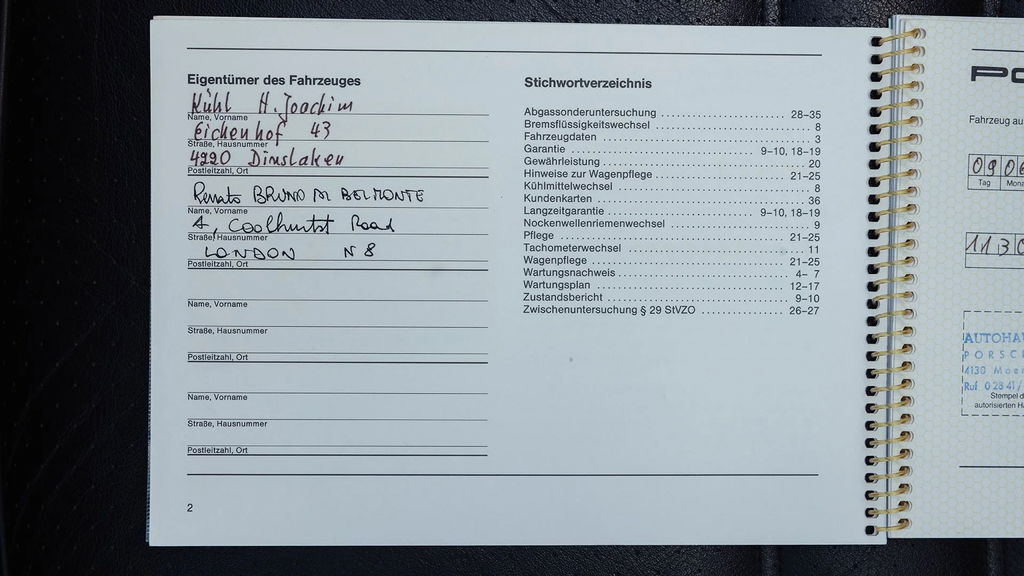 Eigentümer des Fahrzeuges
Kühl H. Joachim
Name, Vorname
Eichenhof 43
Straße, Hausnummer
4220 Dinslaken
Postleitzahl, Ort
Renato BRUNO M BELMONTE
Name, Vorname
4, Coolhurst Road
Straße, Hausnummer
LONDON N8
Postleitzahl, Ort
Name, Vorname
Straße, Hausnummer
Postleitzahl, Ort
Name, Vorname
Straße, Hausnummer
Postleitzahl, Ort
2
Stichwortverzeichnis
Abgassonderuntersuchung 28–35
Bremsflüssigkeitswechsel 8
Fahrzeugdaten 3
Garantie 9–10, 18–19
Gewährleistung 20
Hinweise zur Wagenpflege 21–25
Kühlmittelwechsel 8
Kundenkarten 36
Langzeitgarantie 9–10, 18–19
Nockenwellenriemenwechsel 9
Pflege 21–25
Tachometerwechsel 11
Wagenpflege 21–25
Wartungsnachweis 4– 7
Wartungsplan 12–17
Zustandsbericht 9–10
Zwischenuntersuchung § 29 StVZO 26–27
PO
Fahrzeug au
09 06
Tag Mona
1130
AUTOHA
PORSC
4130 Moe
Ruf 0 28 41/
Stempel d
autorisierten H